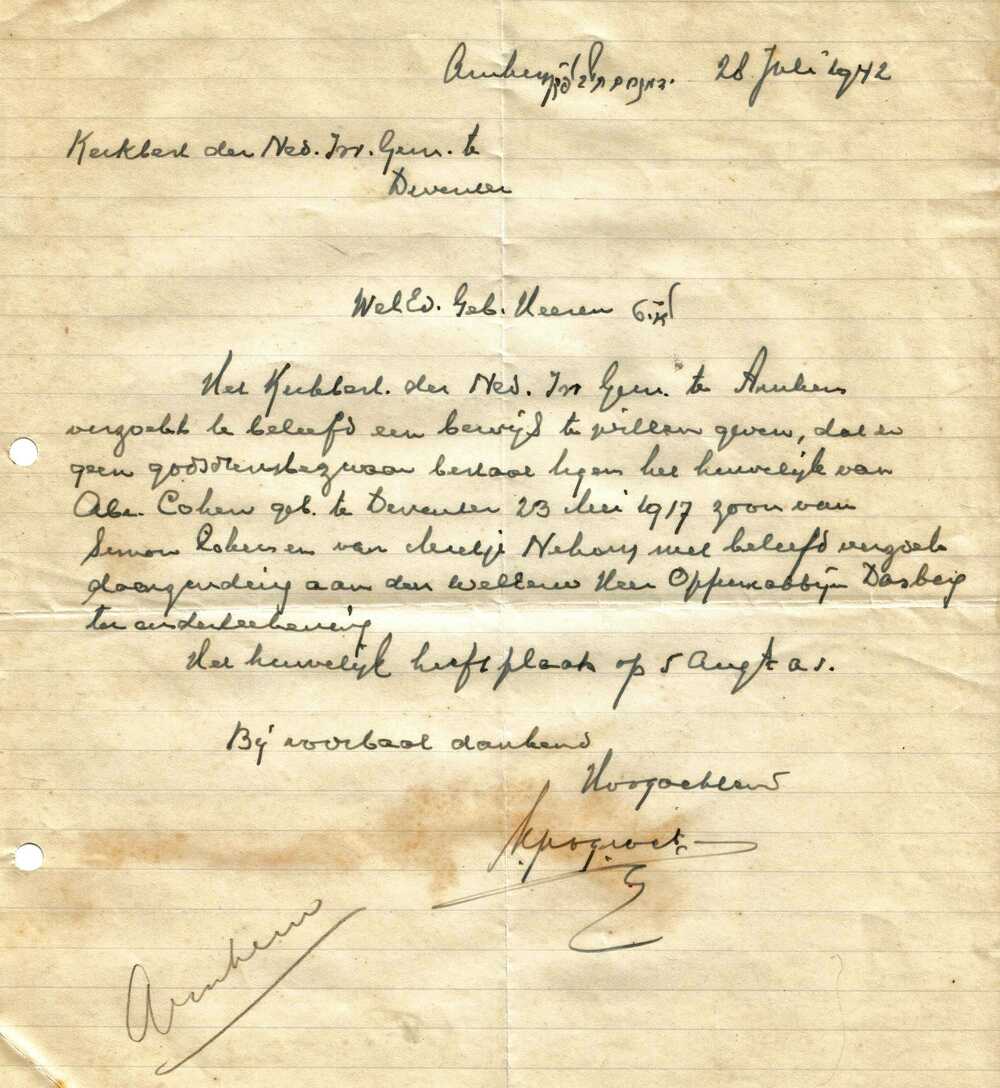 Arnhem 28 Juli 1942
Kerkbest der Ned. Isr. Gem. te
Deventer
WelEd. Geb. Heeren
Het Kerkbest. der Ned. Isr Gem. te Arnhem
verzoekt te beleefd een bewijs te willen geven, dat er
geen godsdienstbezwaar bestaat tegen het huwelijk van
Abr. Cohen geb. te Deventer 23 Mei 1917 zoon van
Simon Cohen en van Meetje met beleefd verzoek
doorzending aan den Heer Opperrabbijn Dasberg
ter onderteekening
Het huwelijk heeft plaats op 5 Aug a.s.
Bij voorbaat dankend
Hoogachtend
Arnhem